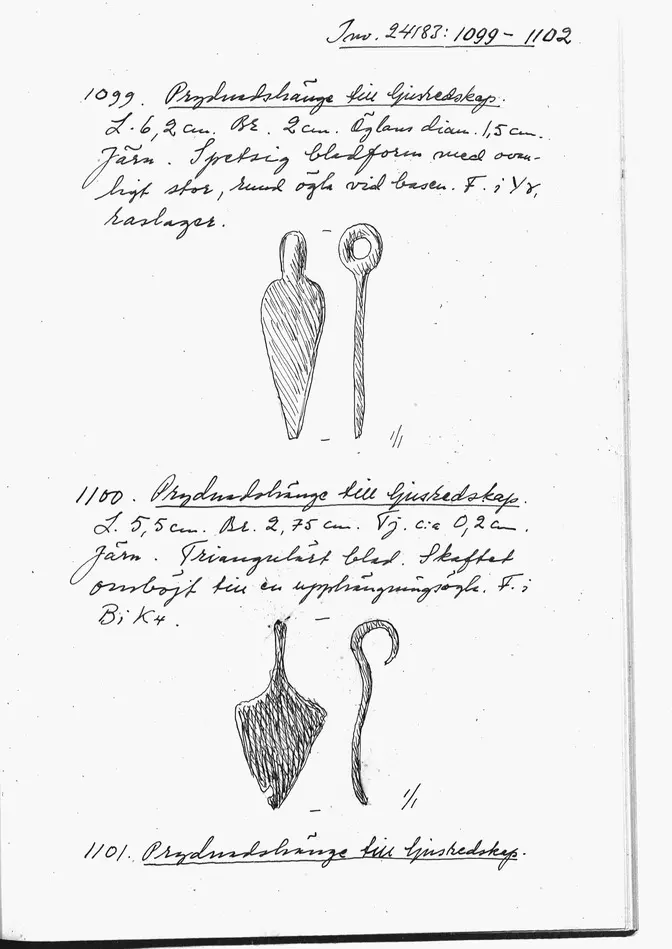 Inv. 24183: 1099 - 1102
1099. Prydnadshänge till ljusredskap.
L. 6,2 cm. Br. 2 cm. Öglans diam. 1,5 cm.
Järn. Spetsig bladform med ovan-
ligt stor, rund ögla vid basen. F. i Yr,
raslager.
1/1
1100. Prydnadshänge till ljusredskap.
L. 5,5 cm. Br. 2,75 cm. Tj. c:a 0,2 cm.
Järn. Triangulärt blad. Skaftet
omböjt till en upphängningsögla. F. i
Bi K4.
1/1
1101. Prydnadshänge till ljusredskap.